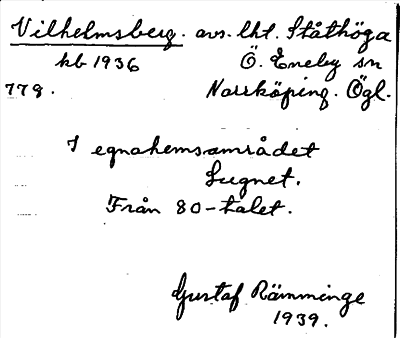 Vilhelmsberg. avs. lht. Ståthöga
kb 1936 Ö. Eneby sn
779. Norrköping. Ögl.
I egnahemsområdet
Lugnet.
Från 80-talet.
Gustaf Rämminge
1939.